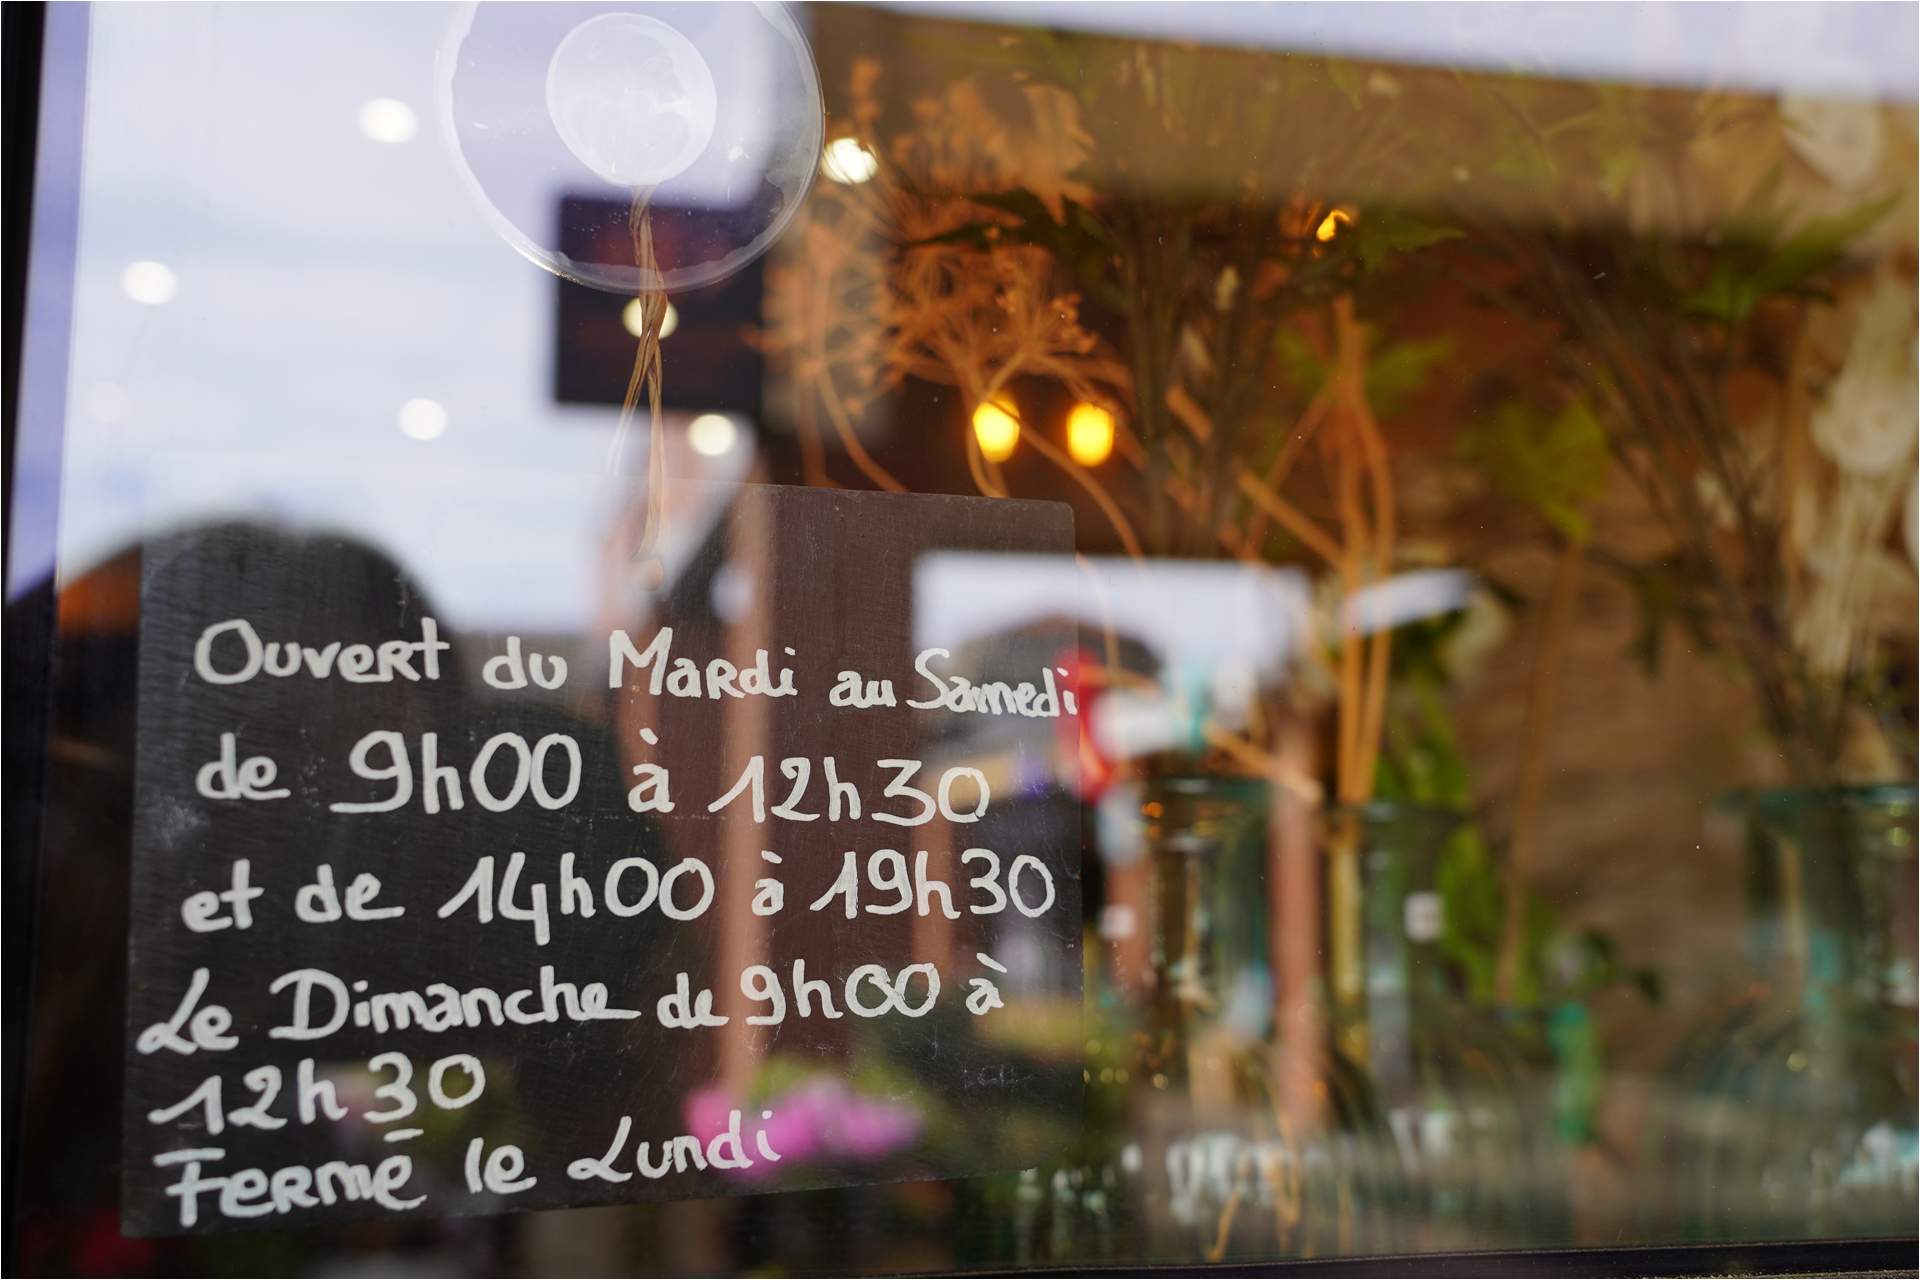 Ouvert du Mardi au Samedi
de 9h00 à 12h30
et de 14h00 à 19h30
Le Dimanche de 9h00 à
12h30
Fermē le Lundi